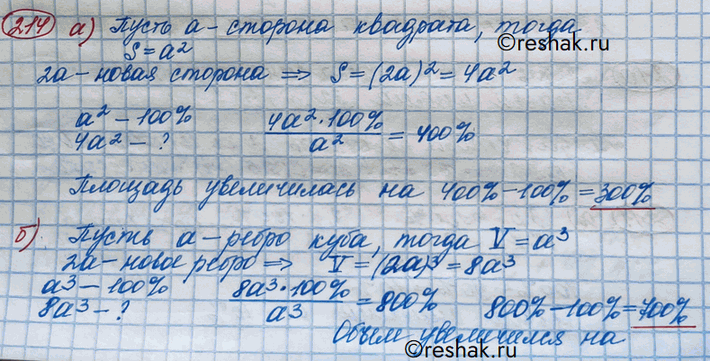 214 а) Пусть а - сторона квадрата, тогда
S = a²
©reshak.ru
2а - новая сторона ⇒ S = (2a)² = 4a²
a² - 100%
4a² - ?
4a² · 100% / a² = 400%
Площадь увеличилась на 400% - 100% = 300%
б) Пусть а - ребро куба, тогда V = a³
2а - новое ребро ⇒ V = (2a)³ = 8a³
a³ - 100%
8a³ - ?
8a³ · 100% / a³ = 800%
800% - 100% = 700%
Объем увеличился на
©reshak.ru